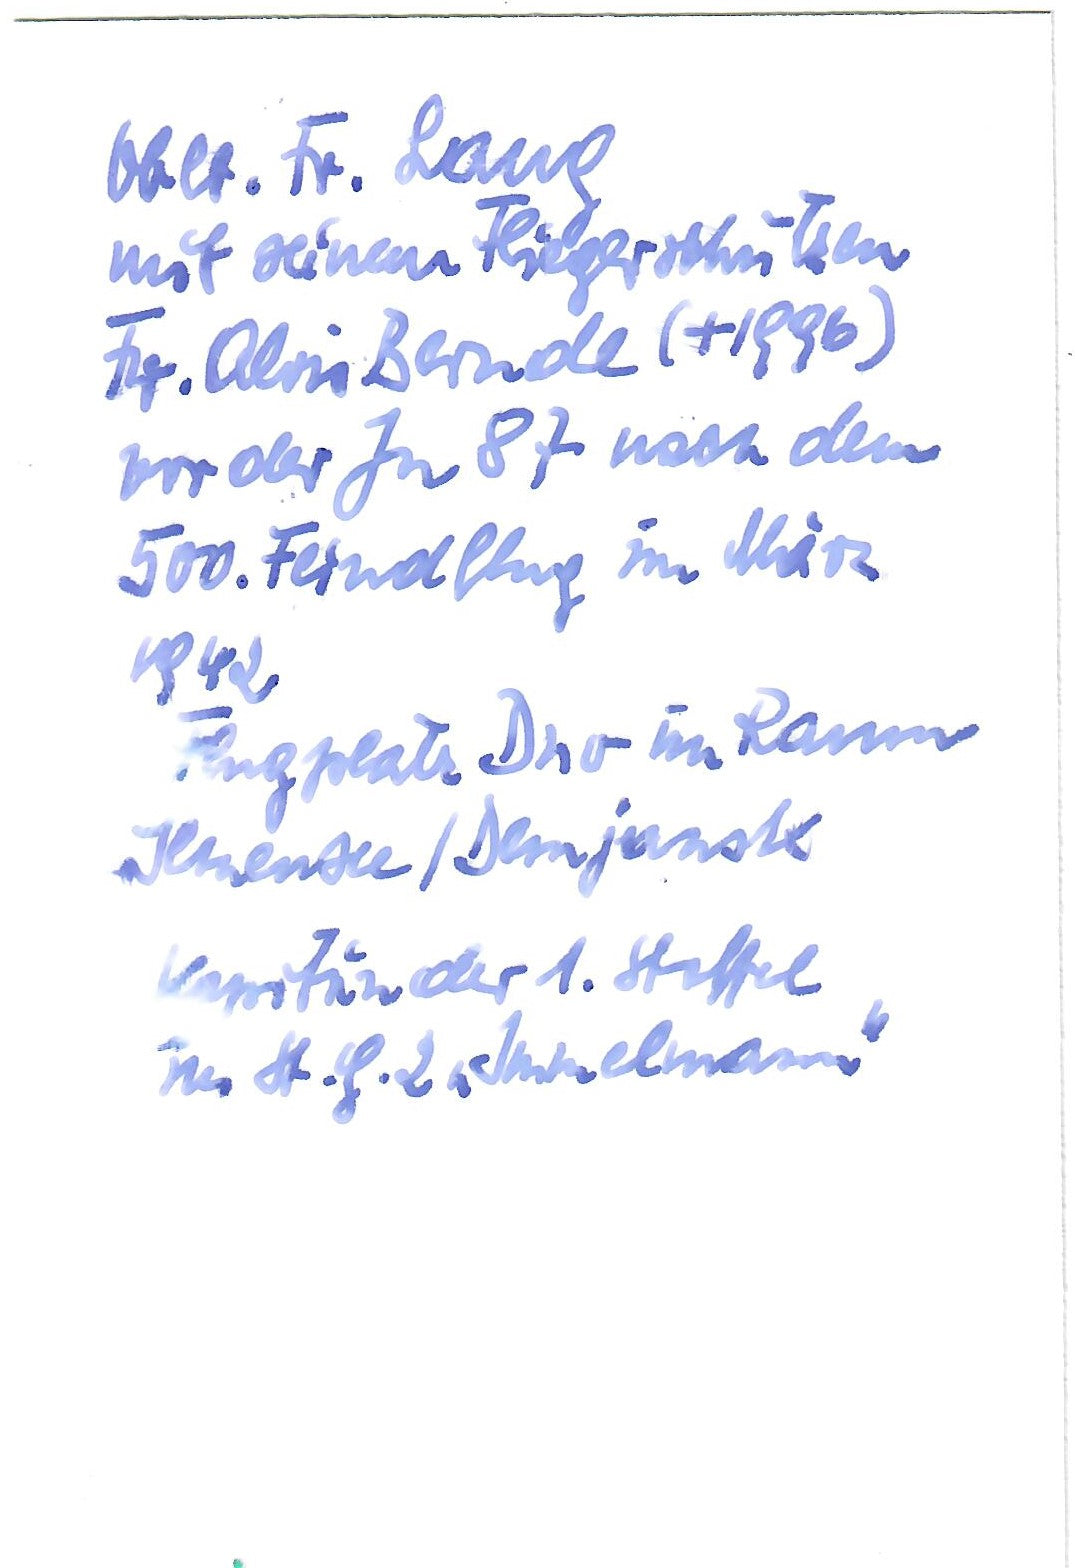 Oblt. Fr. Lang
mit seinem Fliegerschützen
Fw. Bernde (+1996)
vor der Ju 87 nach dem
500. Feindflug im März
1942
Flugplatz Dno im Raum
Ilmensee/Demjansk
Kapitän der 1. Staffel
im St.G.2 „Immelmann“